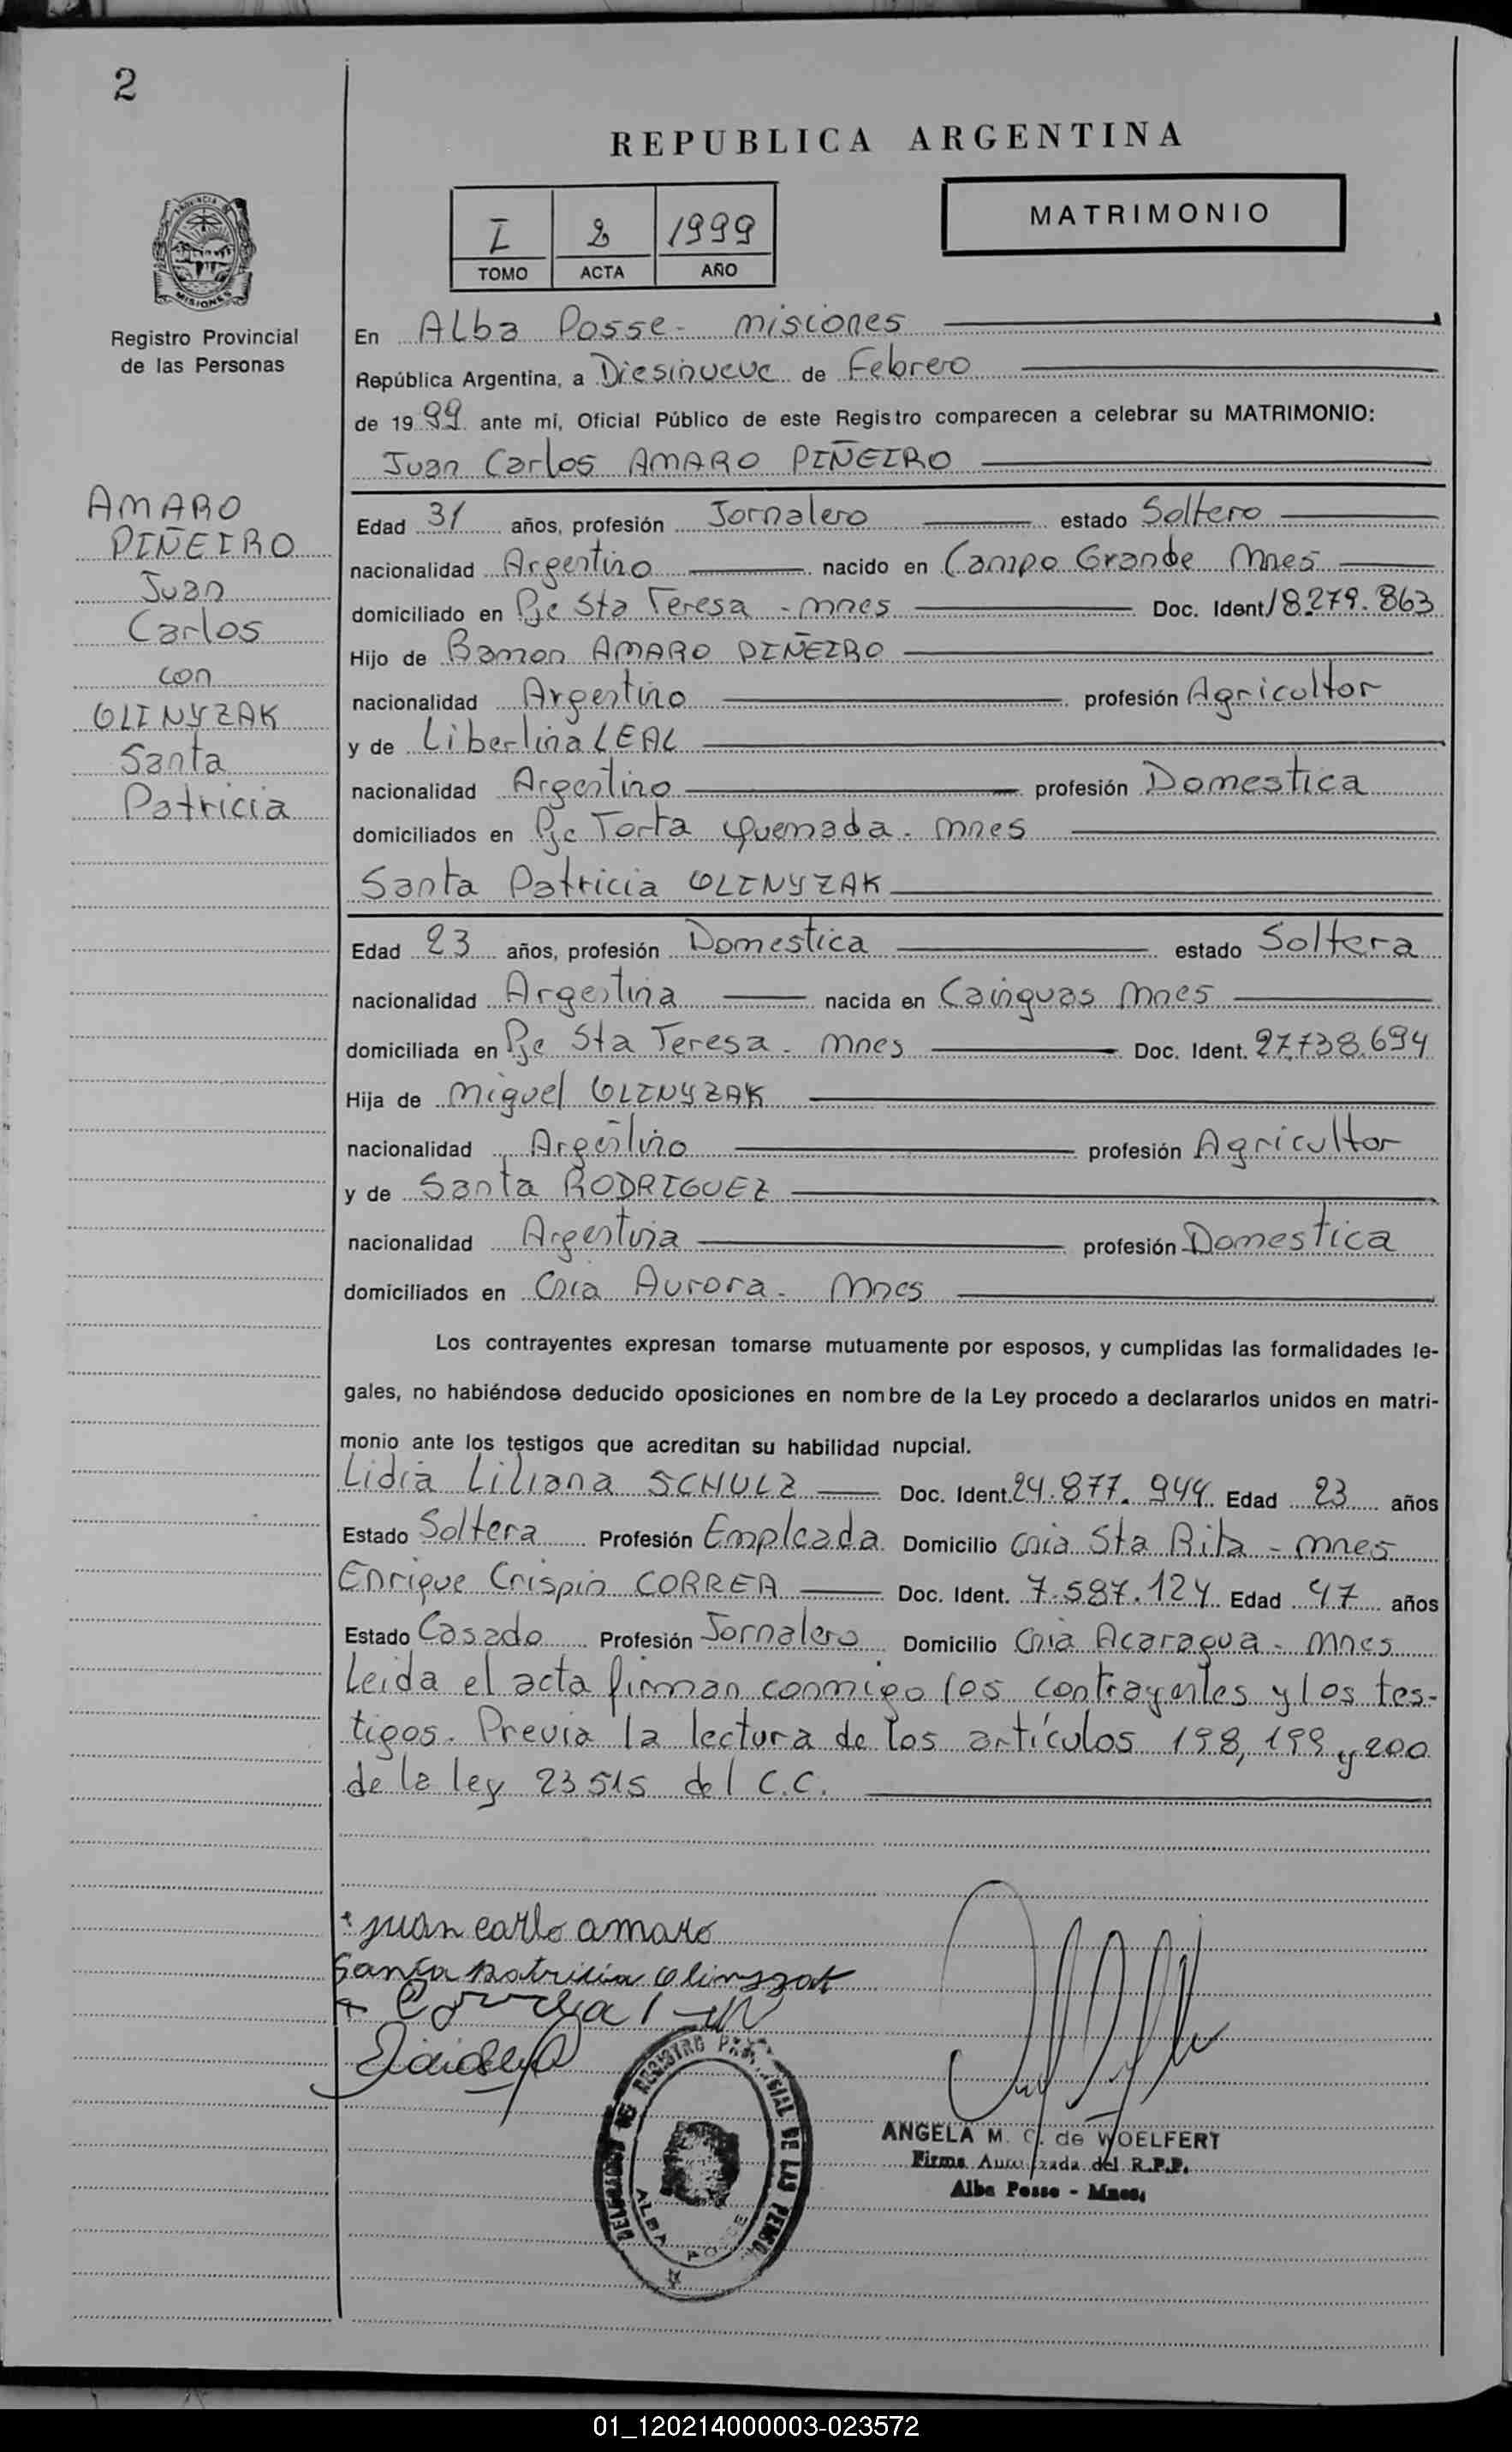 2
REPUBLICA ARGENTINA
I 2 1999
TOMO ACTA AÑO
MATRIMONIO
PROVINCIA DE
MISIONES
Registro Provincial
de las Personas
AMARO
PIÑEIRO
Juan
Carlos
con
OLINYZAK
Santa
Patricia
En Alba Posse - misiones
República Argentina, a Diesinueve de Febrero
de 1999 ante mí, Oficial Público de este Registro comparecen a celebrar su MATRIMONIO:
Juan Carlos AMARO PIÑEIRO
Edad 31 años, profesión Jornalero estado Soltero
nacionalidad Argentino nacido en Campo Grande Mnes
domiciliado en Pje Sta Teresa - mnes Doc. Ident. 18.279.863
Hijo de Ramon AMARO PIÑEIRO
nacionalidad Argentino profesión Agricultor
y de Liberlina LEAL
nacionalidad Argentino profesión Domestica
domiciliados en Pje Torta Quemada - mnes
Santa Patricia OLINYZAK
Edad 23 años, profesión Domestica estado Soltera
nacionalidad Argentina nacida en Cainguas Mnes
domiciliada en Pje Sta Teresa - mnes Doc. Ident. 27.738.694
Hija de Miguel OLINYZAK
nacionalidad Argentino profesión Agricultor
y de Santa RODRIGUEZ
nacionalidad Argentina profesión Domestica
domiciliados en Cnia Aurora - Mnes
Los contrayentes expresan tomarse mutuamente por esposos, y cumplidas las formalidades le-
gales, no habiéndose deducido oposiciones en nombre de la Ley procedo a declararlos unidos en matri-
monio ante los testigos que acreditan su habilidad nupcial.
Lidia Liliana SCHULZ Doc. Ident. 24.877.944 Edad 23 años
Estado Soltera Profesión Empleada Domicilio Cnia Sta Rita - mnes
Enrique Crispin CORREA Doc. Ident. 7.587.124 Edad 47 años
Estado Casado Profesión Jornalero Domicilio Cnia Acaragua - Mnes
Leida el acta firman conmigo los contrayentes y los tes-
tigos. Previa la lectura de los artículos 198, 199 y 200
de la ley 23515 del C.C.
juan carlo amaro
Santa Patricia Olinyzak
Correa
REGISTRO DE LAS
ALBA POSSE
ANGELA M. C. de WOELFERT
Firma Autorizada del R.P.P.
Alba Posse - Mnes.
01_120214000003-023572